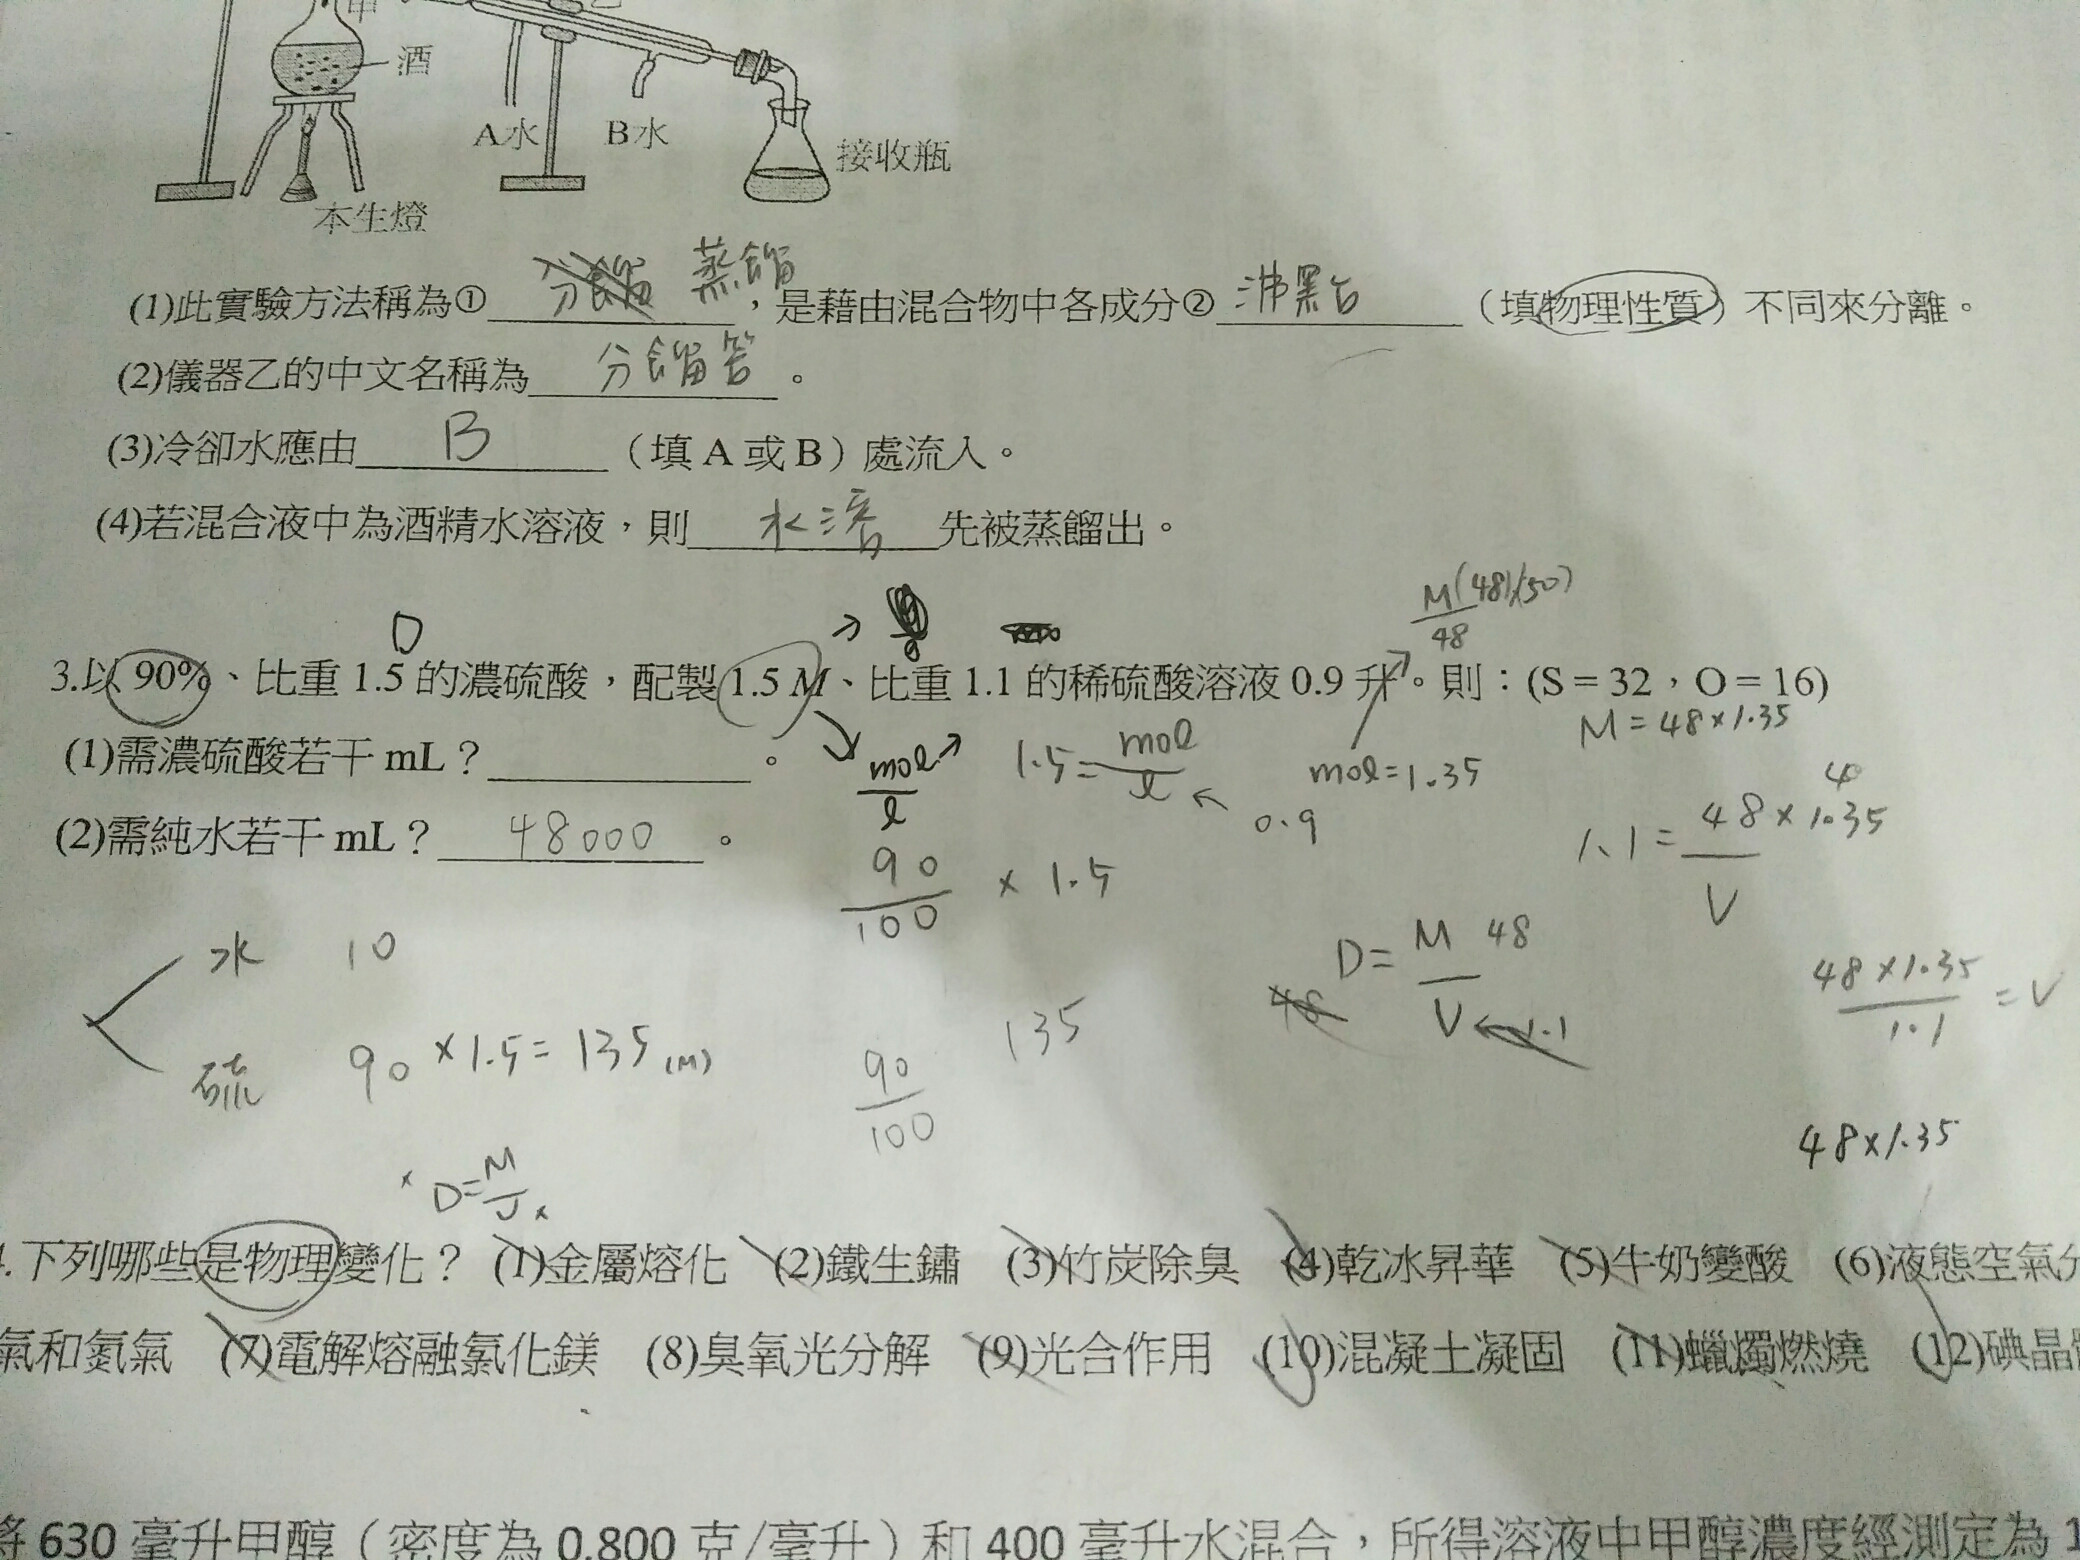 甲
酒
A水
B水
接收瓶
本生燈
(1)此實驗方法稱為① 蒸餾 ,是藉由混合物中各成分② 沸點 (填物理性質)不同來分離。
(2)儀器乙的中文名稱為 分餾管 。
(3)冷卻水應由 B (填 A 或 B)處流入。
(4)若混合液中為酒精水溶液,則 水溶 先被蒸餾出。
M(48)(50)
48
D
3.以 90%、比重 1.5 的濃硫酸,配製 1.5 M、比重 1.1 的稀硫酸溶液 0.9 升。則:(S = 32,O = 16)
M = 48 × 1.35
(1)需濃硫酸若干 mL?
。
mol
l
1.5 = mol
l
0.9
mol = 1.35
(2)需純水若干 mL? 48000 。
1.1 = 48 × 1.35
V
90
100
× 1.5
水 10
D = M 48
V
1.1
48 × 1.35
1.1
= V
硫 90 × 1.5 = 135 (M)
90
100
135
48 × 1.35
D = M
4.下列哪些是物理變化? (1)金屬熔化 (2)鐵生鏽 (3)竹炭除臭 (4)乾冰昇華 (5)牛奶變酸 (6)液態空氣分
氣和氮氣 (7)電解熔融氯化鎂 (8)臭氧光分解 (9)光合作用 (10)混凝土凝固 (11)蠟燭燃燒 (12)碘晶
將 630 毫升甲醇(密度為 0.800 克/毫升)和 400 毫升水混合,所得溶液中甲醇濃度經測定為 1